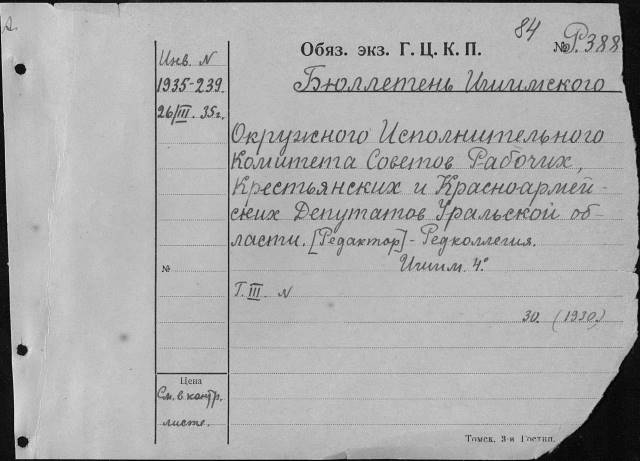 84
Обяз. экз. Г. Ц. К. П.
№ Р.388
Инв. N
1935-239.
26/III. 35г.
Бюллетень Ишимского
Окружного Исполнительного
Комитета Советов Рабочих,
Крестьянских и Красноармей-
ских Депутатов Уральской об-
ласти. [Редактор] - Редколлегия.
Ишим. 4°
№
Г. III. N
30. (1930)
Цена
См. в контр.
листе.
Томск. 3-я Гостип.